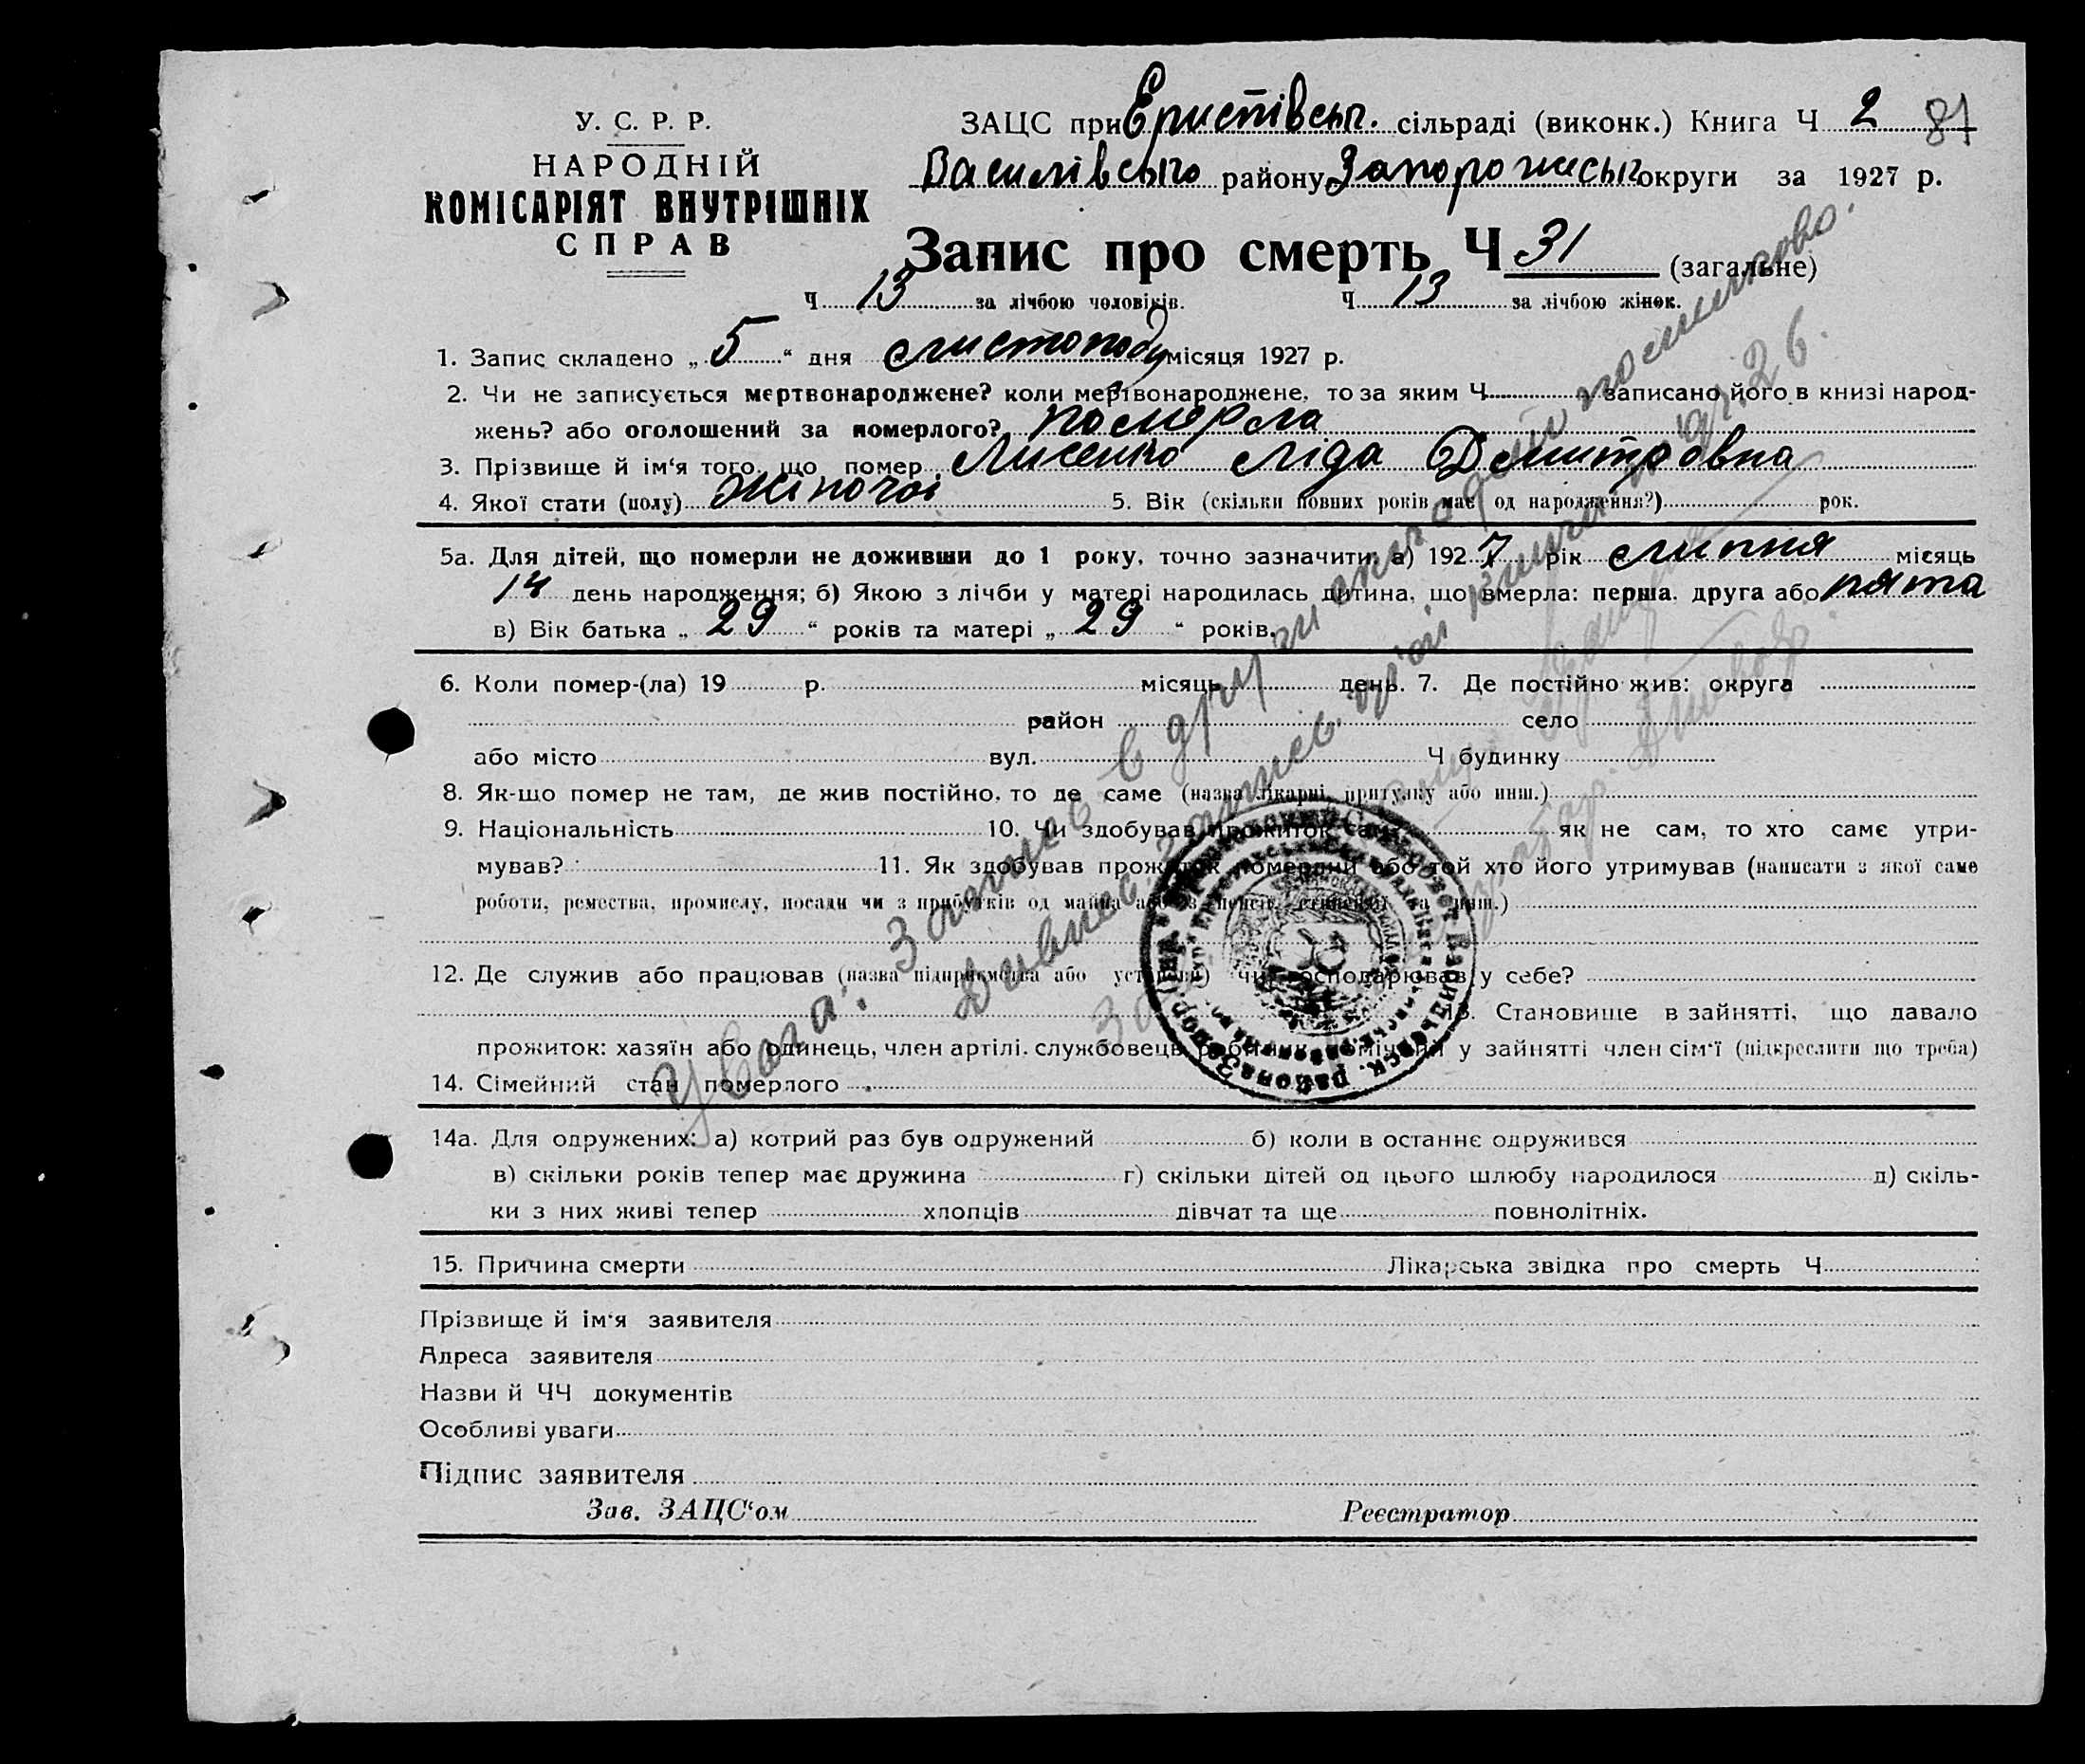 У. С. Р. Р.
НАРОДНІЙ
КОМІСАРІЯТ ВНУТРІШНІХ
СПРАВ
ЗАЦС при Еристівськ. сільраді (виконк.) Книга Ч 2 81
Василівсього району Запорожськ округи за 1927 р.
Запис про смерть Ч 31 (загальне)
Ч 13 за лічбою чоловіків. Ч 13 за лічбою жінок.
1. Запис складено „ 5 “ дня листопаду місяця 1927 р.
2. Чи не записується мертвонароджене? коли мертвонароджене, то за яким Ч записано його в книзі народ-
жень? або оголошений за померлого? померла
3. Прізвище й ім‘я того, що помер Лисенко Ліда Дмитровна
4. Якої стати (полу) жіночої 5. Вік (скільки повних років має од народження?) рок.
5а. Для дітей, що померли не доживши до 1 року, точно зазначити: а) 1927 рік липня місяць
14 день народження; б) Якою з лічби у матері народилась дитина, що вмерла: перша, друга або пята
в) Вік батька „ 29 “ років та матері „ 29 “ років.
6. Коли помер-(ла) 19 р. місяць день. 7. Де постійно жив: округа
район село
або місто вул. Ч будинку
8. Як-що помер не там, де жив постійно, то де саме (назва лікарні, притулку або инш.)
9. Національність 10. Чи здобував прожиток сам як не сам, то хто саме утри-
мував? 11. Як здобував прожиток померлий або той хто його утримував (написати з якої саме
роботи, ремества, промислу, посади чи з прибутків од майна або з пенсії, стипендії та инш.)
12. Де служив або працював (назва підприємства або установи) чи господарював у себе?
13. Становище в зайнятті, що давало
прожиток: хазяїн або одинець, член артілі, службовець, робітник, помічний у зайнятті член сім‘ї (підкреслити що треба)
14. Сімейний стан померлого
14а. Для одружених: а) котрий раз був одружений б) коли в останнє одружився
в) скільки років тепер має дружина г) скільки дітей од цього шлюбу народилося д) скіль-
ки з них живі тепер хлопців дівчат та ще повнолітніх.
15. Причина смерти Лікарська звідка про смерть Ч
Прізвище й ім‘я заявителя
Адреса заявителя
Назви й ЧЧ документів
Особливі уваги
Підпис заявителя
Зав. ЗАЦС‘ом Реєстратор
Увага: Запис в
Дивись запис